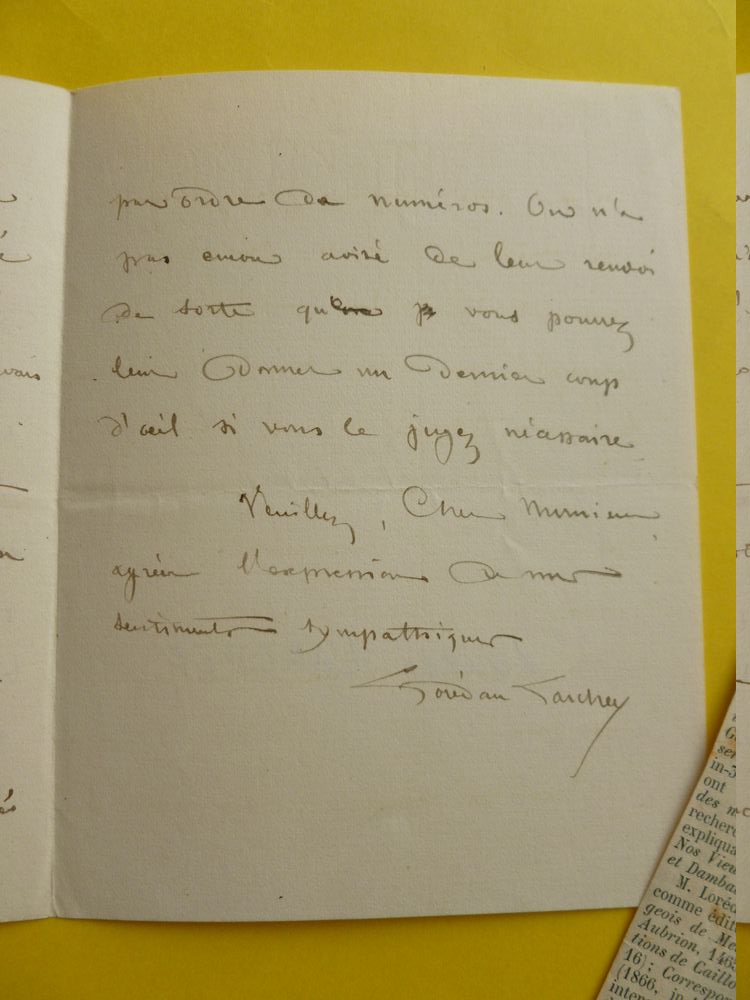 par ordre de numéros. On n'a
pas encore avisé de leur renvoi
de sorte que vous pourrez
leur donner un dernier coup
d'œil si vous le jugez nécessaire
Veuillez, Cher Monsieur,
agréer l'expression de mes
sentiments sympathiques
Lorédan Larchey
vais
in-
ont
des
recher
expliqua
Nos Vieu
et Damba
M. Loréd
comme édit
geois de Me
Aubrion, 146
tions de Caillo
16); Correspon
(1866, in
inter